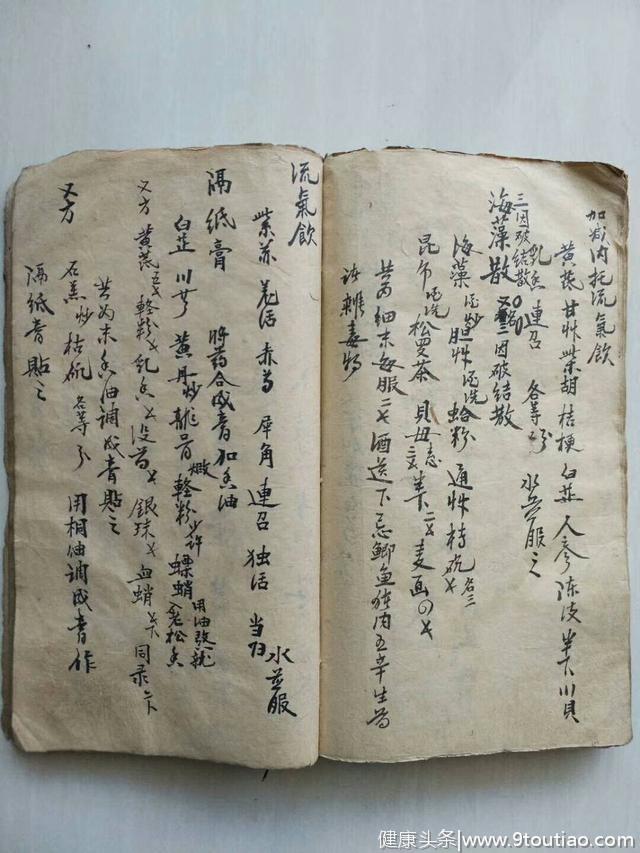 加减内托流氣飲
黄芪 甘艸 柴胡 桔梗 白芷 人參 陈皮 半下 川貝
乳香 連召 各等分 水煎服之
三因破结散
海藻散 三因破结散
海藻酒炒 胆艸酒洗 蛤粉 通艸 枯矾 各三
昆布酒洗 松罗茶 貝母去 半下二 麦面四
共为细末每服二 酒送下忌鲫鱼 肉五辛生
毒物
流氣飲
紫苏 羌活 赤芍 犀角 連召 独活 当归 水煎服
隔纸膏 眙药合成膏加香油
白芷 川芎 黄丹炒 龍骨煅 轻粉少许 螵蛸 用油
入老松香
又方 黄芪五 轻粉 乳香 没药 銀珠 血蛸 同录
共为末香油调成膏貼之
又方 石羔炒 枯矾 各等分 用桐油調成膏作
隔纸膏貼之
健康头条 www.9toutiao.com